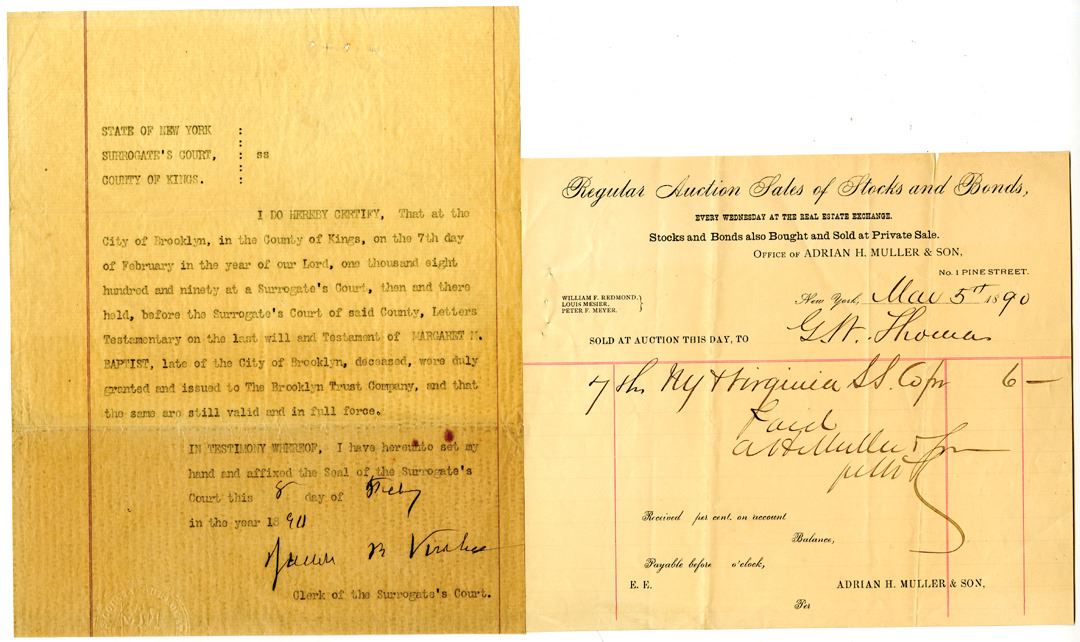 STATE OF NEW YORK :
SURROGATE'S COURT, : ss
COUNTY OF KINGS. :
I DO HEREBY CERTIFY, That at the
City of Brooklyn, in the County of Kings, on the 7th day
of February in the year of our Lord, one thousand eight
hundred and ninety at a Surrogate's Court, then and there
held, before the Surrogate's Court of said County, Letters
Testamentary on the last will and Testament of MARGARET M.
BAPTIST, late of the City of Brooklyn, deceased, were duly
granted and issued to The Brooklyn Trust Company, and that
the same are still valid and in full force.
IN TESTIMONY WHEREOF, I have hereunto set my
hand and affixed the Seal of the Surrogate's
Court this 8 day of Feby
in the year 18 90
B
Clerk of the Surrogate's Court.
Regular Auction Sales of Stocks and Bonds,
EVERY WEDNESDAY AT THE REAL ESTATE EXCHANGE.
Stocks and Bonds also Bought and Sold at Private Sale.
OFFICE OF ADRIAN H. MULLER & SON,
No. 1 PINE STREET.
WILLIAM F. REDMOND,
LOUIS MESIER,
PETER F. MEYER.
New York, Mar 5th 1890
SOLD AT AUCTION THIS DAY, TO G.W. Thomas
7 shs NY & Virginia S.S. Co 6 —
Paid
A H Muller & Son
Received per cent. on account
Balance,
Payable before o'clock,
E. E. ADRIAN H. MULLER & SON,
Per